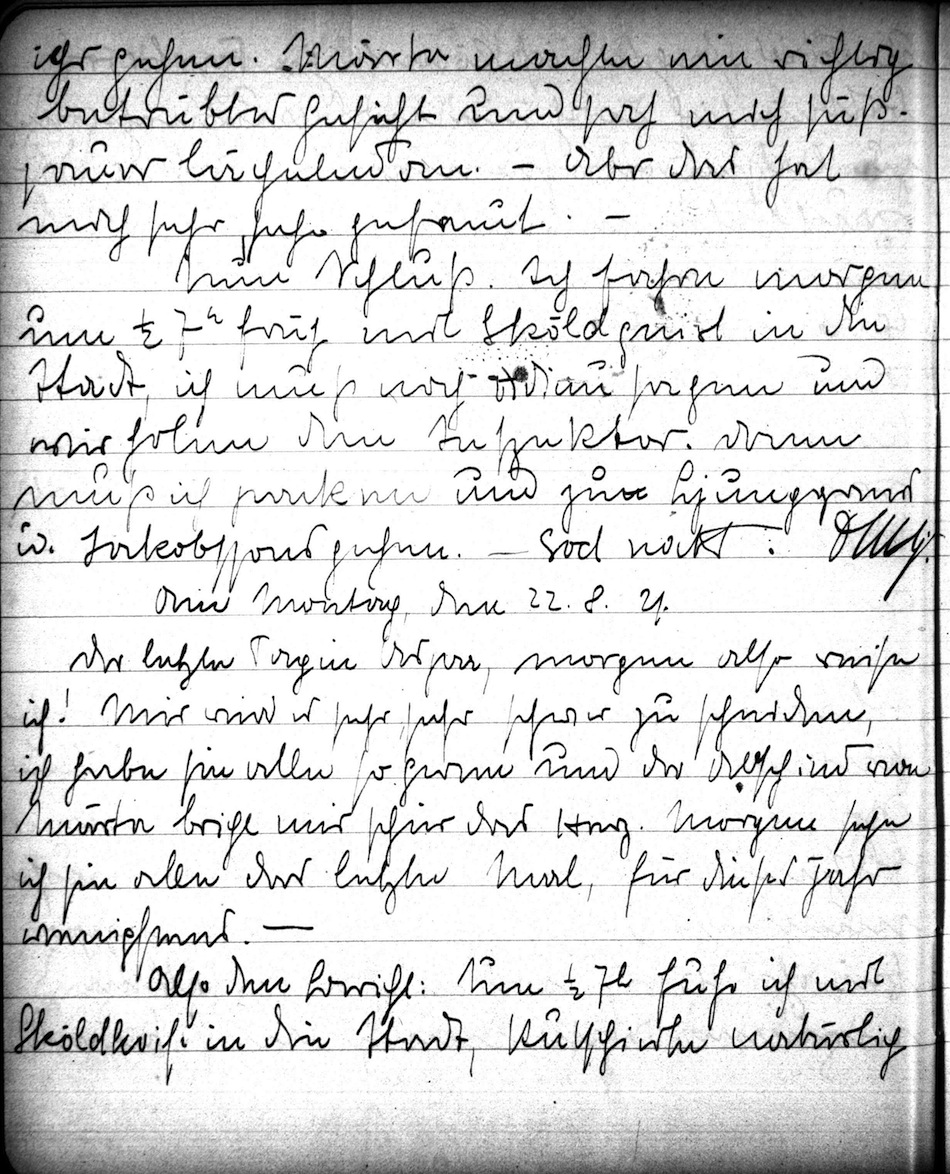 ihr gehen. Märta machte ein richtig
betrübtes Gesicht und sah mich süß-
sauer lächelnd an. – Aber das hat
mich sehr, sehr gefreut. –
Nun Schluß. Ich fahre morgen
um ½ 7ʰ früh mit Sköldquist in die
Stadt, ich muß noch adieu sagen und
wir holen den Inspektor. Dann
muß ich packen und zu Ljunggrens
u. Jakobssons gehen. – God natt!
Am Montag, den 22. 8. 21.
Der letzte Tag in, morgen also reise
ich! Mir wird es sehr, sehr schwer zu scheiden,
ich habe sie alle so gerne und der Abschied von
Märta bricht mir schier das Herz. Morgen sehe
ich sie alle das letzte Mal, für dieses Jahr
wenigstens. —
Also den Bericht: Um ½ 7h fuhr ich mit
in die Stadt, kutschierte natürlich